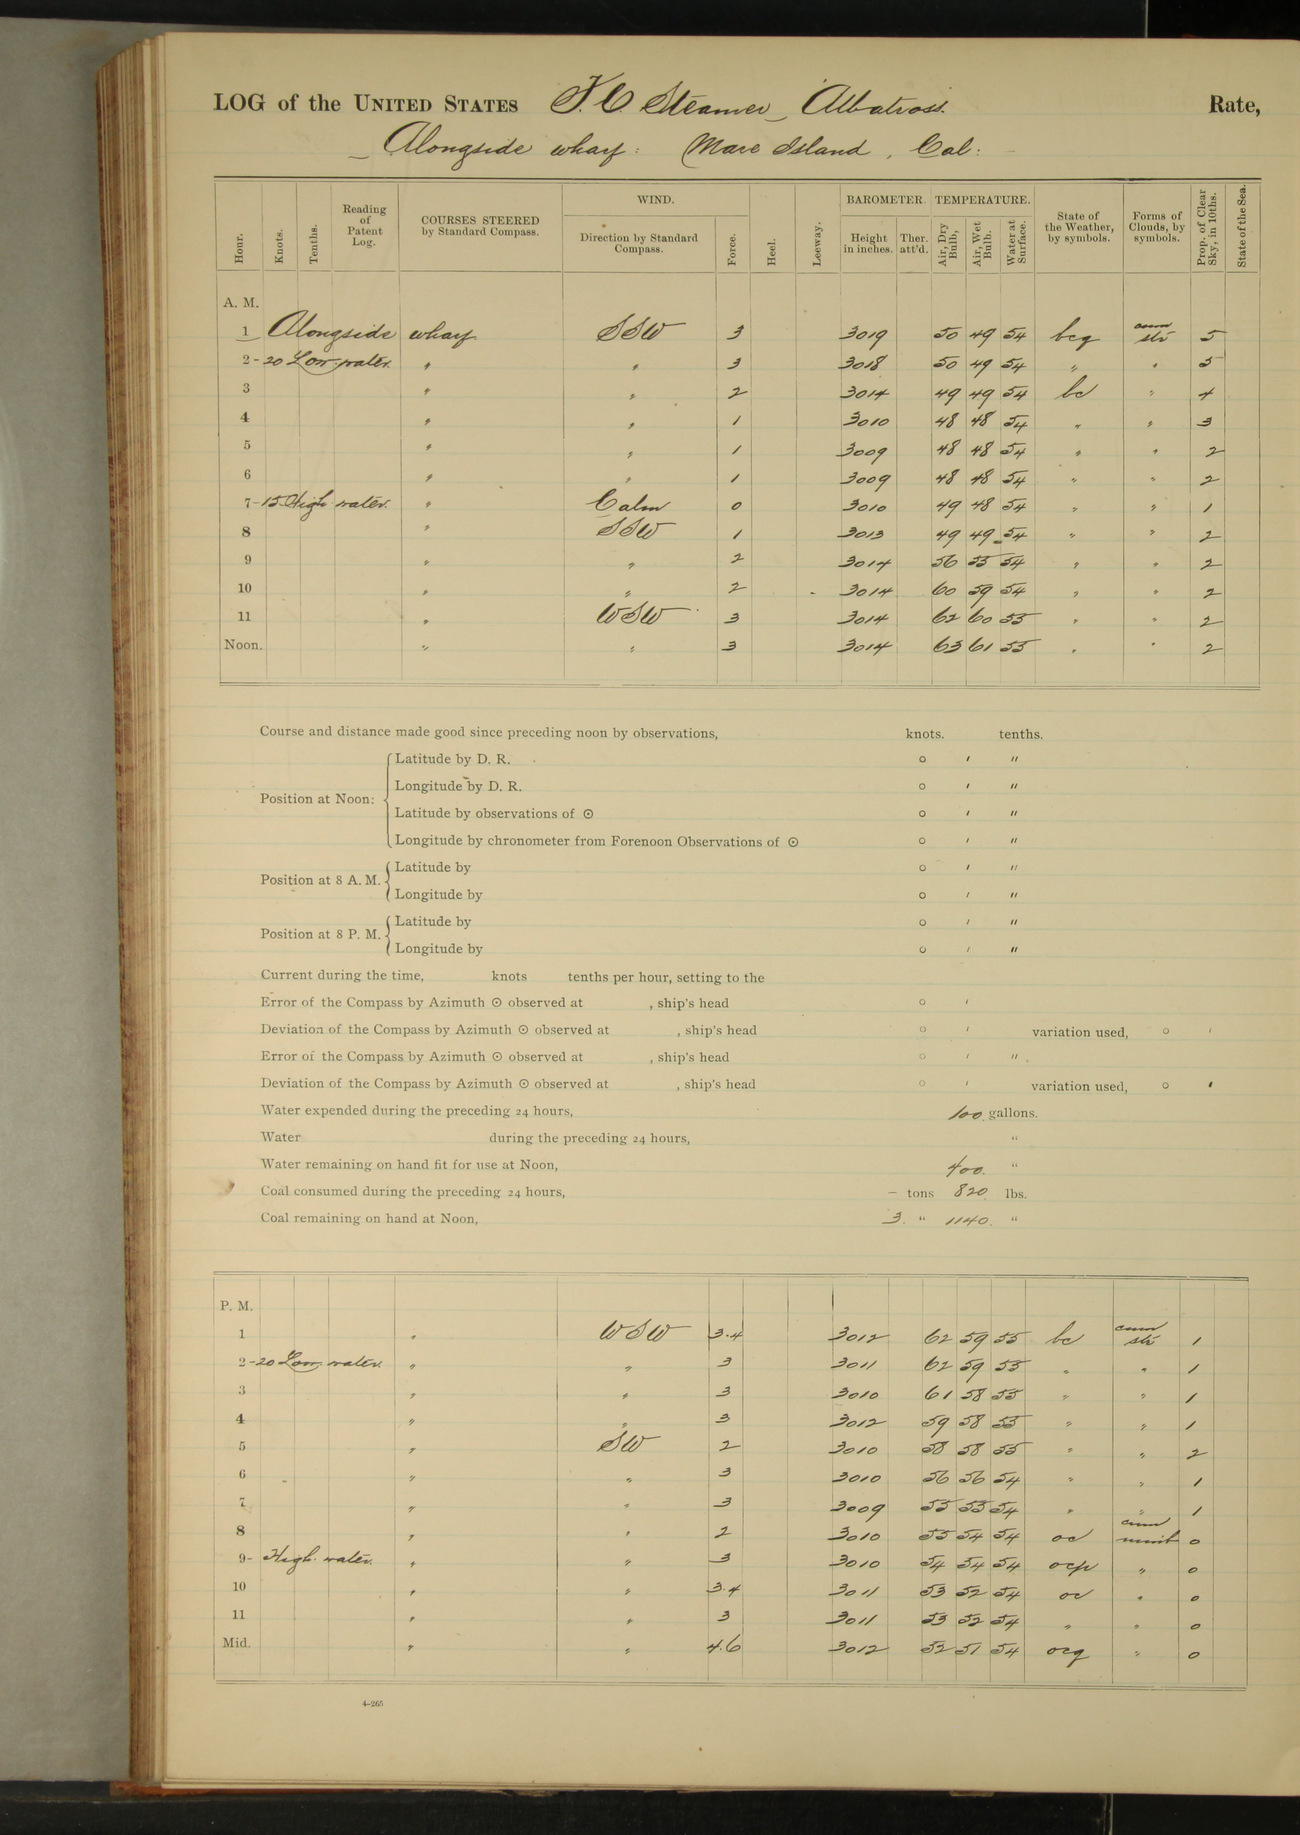 LOG of the UNITED STATES F. C. Steamer Albatross. Rate,
Alongside wharf: Mare Island, Cal:
Hour. Knots. Tenths. Reading of Patent Log. COURSES STEERED by Standard Compass. WIND. Direction by Standard Compass. Force. Heel. Leeway. BAROMETER. Height in inches. Ther. att'd. TEMPERATURE. Air, Dry Bulb, Air, Wet Bulb. Water at Surface. State of the Weather, by symbols. Forms of Clouds, by symbols. Prop. of Clear Sky, in 10ths. State of the Sea.
A. M.
1 Alongside wharf SSW 3 3019 50 49 54 bcg cum str 5
2-20 Low water. " " 3 3018 50 49 54 " " 5
3 " " 2 3014 49 49 54 bc " 4
4 " " 1 3010 48 48 54 " " 3
5 " " 1 3009 48 48 54 " " 2
6 " " 1 3009 48 48 54 " " 2
7-15 High water. " Calm 0 3010 49 48 54 " " 1
8 " SSW 1 3013 49 49 54 " " 2
9 " " 2 3014 56 55 54 " " 2
10 " " 2 3014 60 59 54 " " 2
11 " WSW 3 3014 62 60 55 " " 2
Noon. " " 3 3014 63 61 55 " " 2
Course and distance made good since preceding noon by observations, knots. tenths.
Position at Noon: Latitude by D. R. ° ′ ″
Longitude by D. R. ° ′ ″
Latitude by observations of ☉ ° ′ ″
Longitude by chronometer from Forenoon Observations of ☉ ° ′ ″
Position at 8 A. M. Latitude by ° ′ ″
Longitude by ° ′ ″
Position at 8 P. M. Latitude by ° ′ ″
Longitude by ° ′ ″
Current during the time, knots tenths per hour, setting to the
Error of the Compass by Azimuth ☉ observed at , ship's head ° ′
Deviation of the Compass by Azimuth ☉ observed at , ship's head ° ′ variation used, ° ′
Error of the Compass by Azimuth ☉ observed at , ship's head ° ′ ″
Deviation of the Compass by Azimuth ☉ observed at , ship's head ° ′ variation used, ° ′
Water expended during the preceding 24 hours, 100 gallons.
Water during the preceding 24 hours, "
Water remaining on hand fit for use at Noon, 400. "
Coal consumed during the preceding 24 hours, – tons 820 lbs.
Coal remaining on hand at Noon, 3. " 1140. "
P. M.
1 " WSW 3.4 3012 62 59 55 bc cum str 1
2-20 Low water. " " 3 3011 62 59 55 " " 1
3 " " 3 3010 61 58 55 " " 1
4 " " 3 3012 59 58 55 " " 1
5 " SW 2 3010 58 58 55 " " 2
6 " " 3 3010 56 56 54 " " 1
7 " " 3 3009 55 55 54 " " 1
8 " " 2 3010 55 54 54 oc cum nimb 0
9- High water. " " 3 3010 54 54 54 ocp " 0
10 " " 3.4 3011 53 52 54 oc " 0
11 " " 3 3011 53 52 54 " " 0
Mid. " " 4.6 3012 52 51 54 ocq " 0
4-265